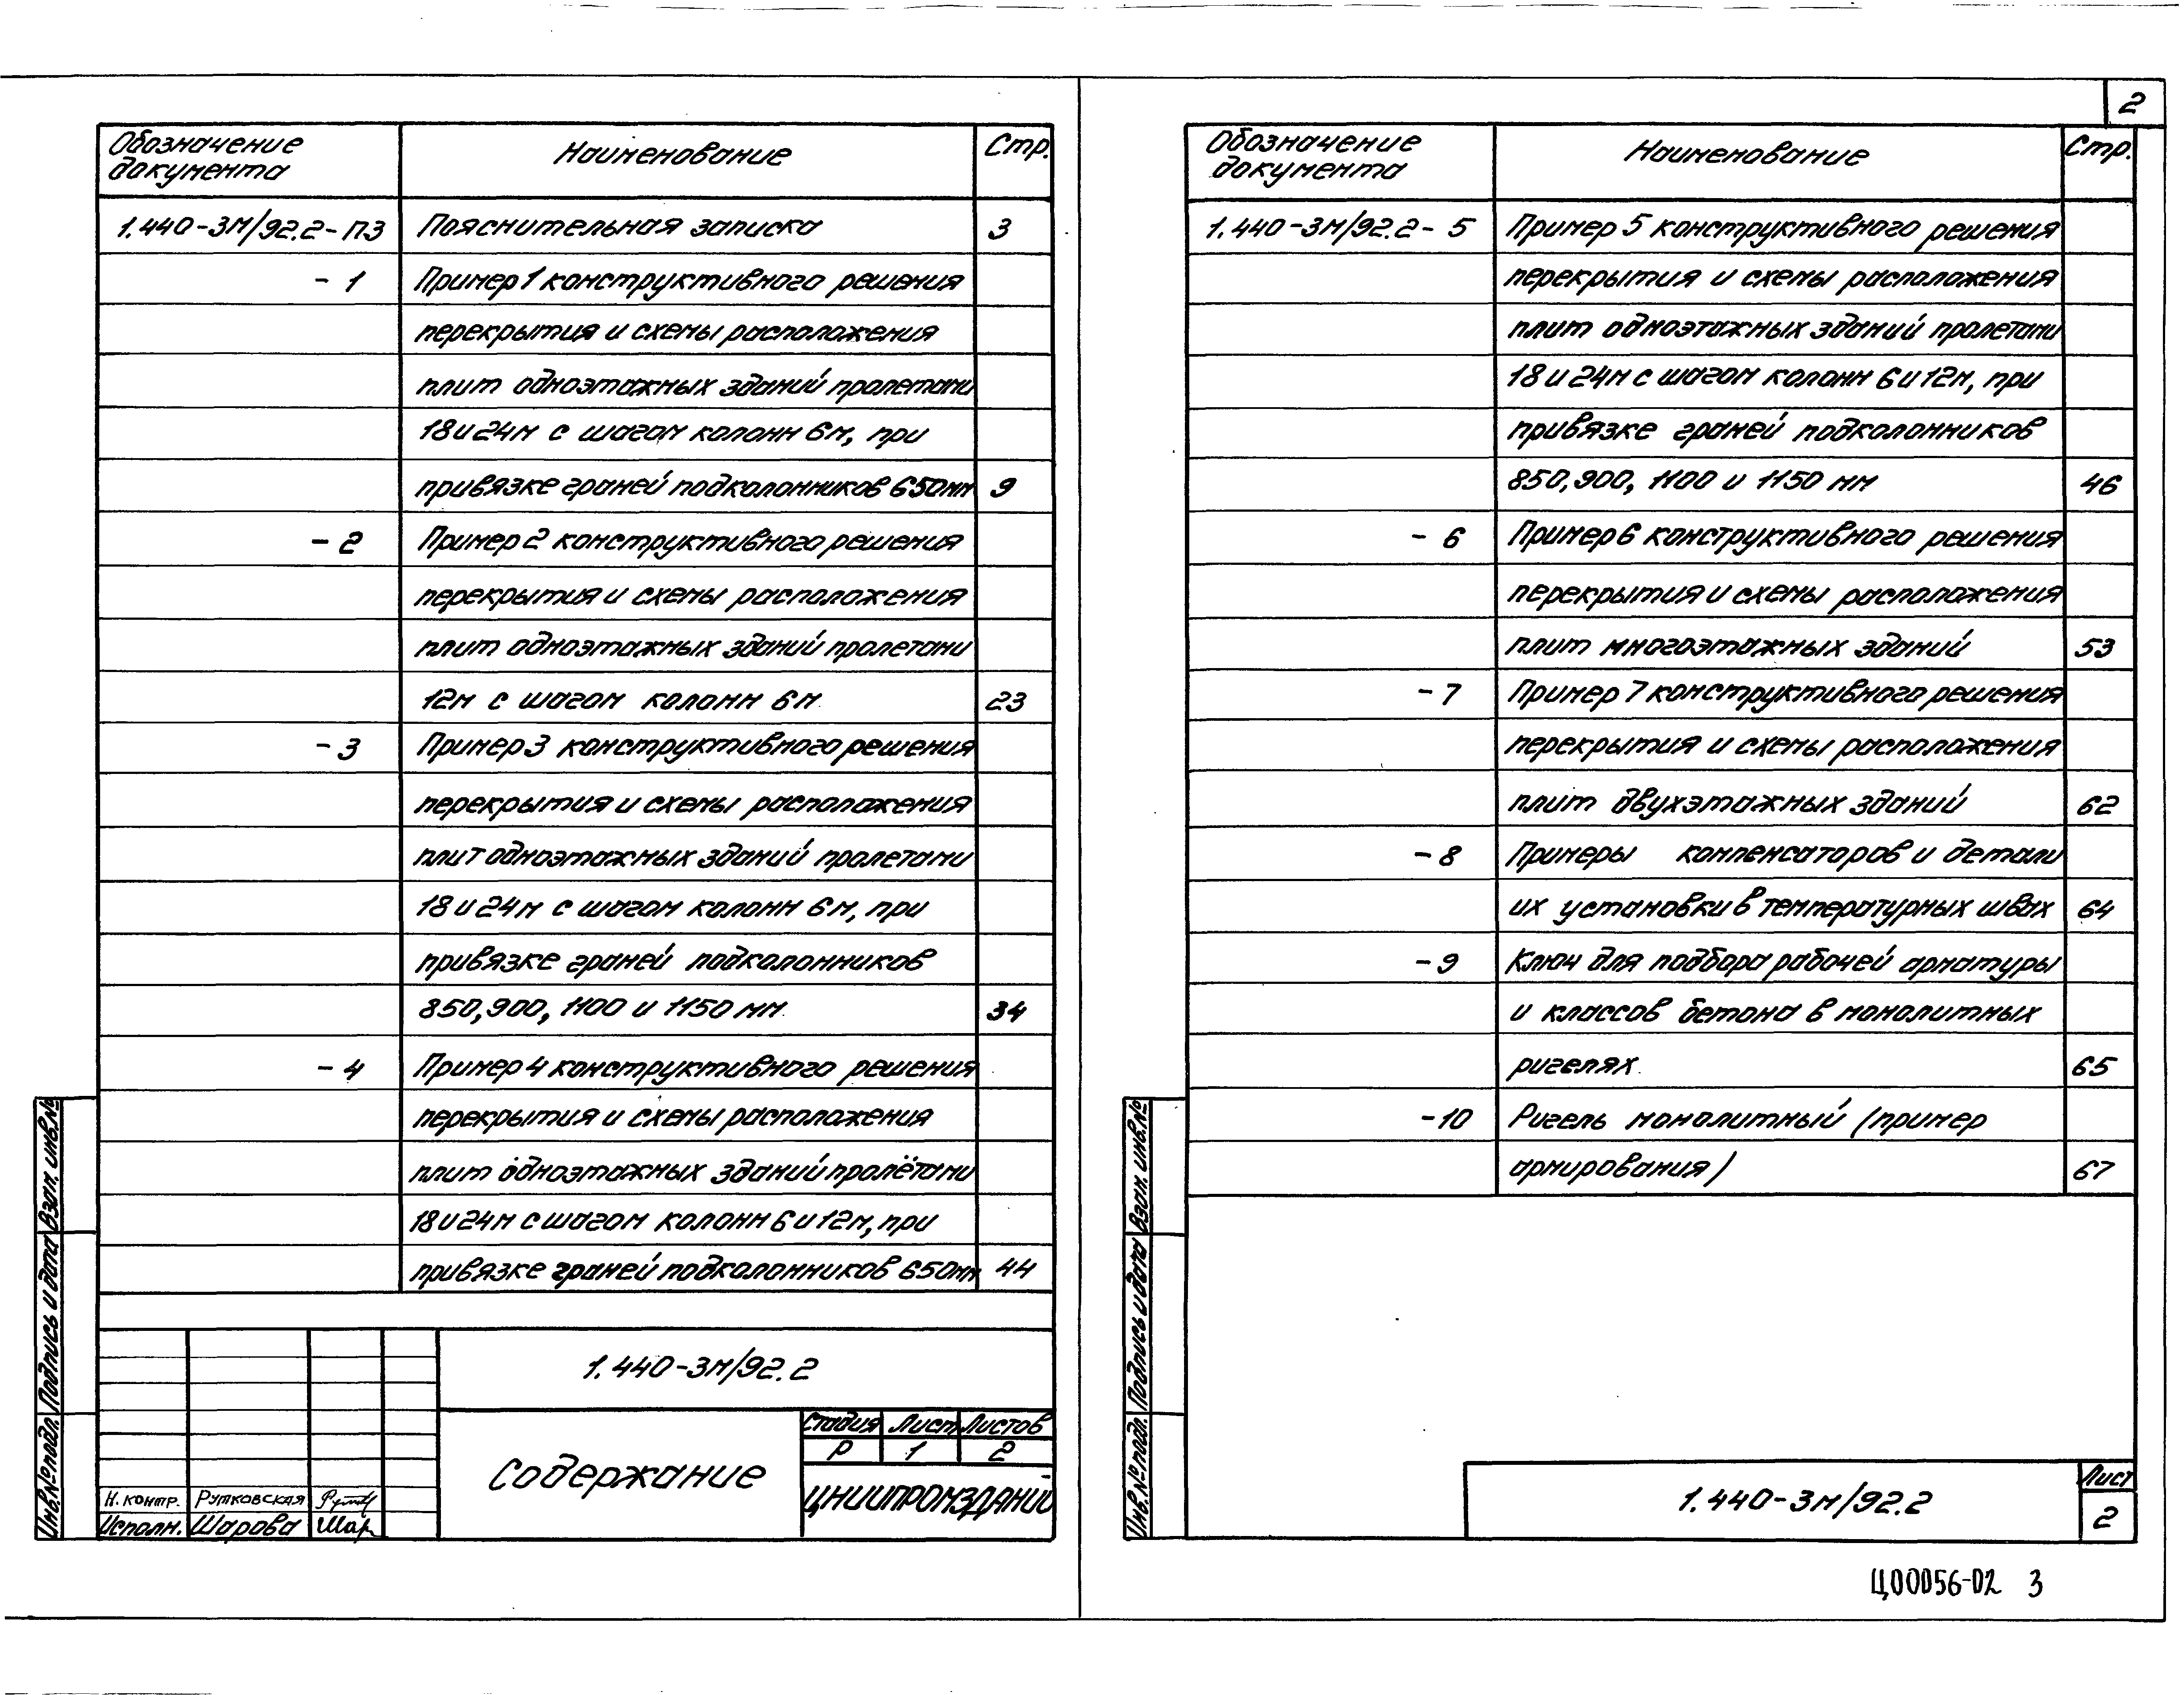 Обозначение документа Наименование Стр.
1.440-3М/92.2-ПЗ Пояснительная записка 3
- 1 Пример 1 конструктивного решения
перекрытия и схемы расположения
плит одноэтажных зданий пролетами
18 и 24м с шагом колонн 6м, при
привязке граней подколонников 650мм 9
- 2 Пример 2 конструктивного решения
перекрытия и схемы расположения
плит одноэтажных зданий пролетами
12м с шагом колонн 6м 23
- 3 Пример 3 конструктивного решения
перекрытия и схемы расположения
плит одноэтажных зданий пролетами
18 и 24м с шагом колонн 6м, при
привязке граней подколонников
850, 900, 1100 и 1150 мм 34
- 4 Пример 4 конструктивного решения
перекрытия и схемы расположения
плит одноэтажных зданий пролётами
18 и 24м с шагом колонн 6 и 12м, при
привязке граней подколонников 650мм 44
1.440-3М/92.2
Содержание
Стадия Лист Листов
Р 1 2
ЦНИИПРОМЗДАНИЙ
Н. контр. Рутковская
Исполн. Шарова Шар
Взам. инв.№
Подпись и дата
Инв.№ подл.
2
Обозначение документа Наименование Стр.
1.440-3М/92.2- 5 Пример 5 конструктивного решения
перекрытия и схемы расположения
плит одноэтажных зданий пролетами
18 и 24м с шагом колонн 6 и 12м, при
привязке граней подколонников
850, 900, 1100 и 1150 мм 46
- 6 Пример 6 конструктивного решения
перекрытия и схемы расположения
плит многоэтажных зданий 53
- 7 Пример 7 конструктивного решения
перекрытия и схемы расположения
плит двухэтажных зданий 62
- 8 Примеры компенсаторов и детали
их установки в температурных швах 64
- 9 Ключ для подбора рабочей арматуры
и классов бетона в монолитных
ригелях 65
- 10 Ригель монолитный (пример
армирования) 67
Взам. инв.№
Подпись и дата
Инв.№ подл.
1.440-3М/92.2
Лист
2
Ц00056-02 3